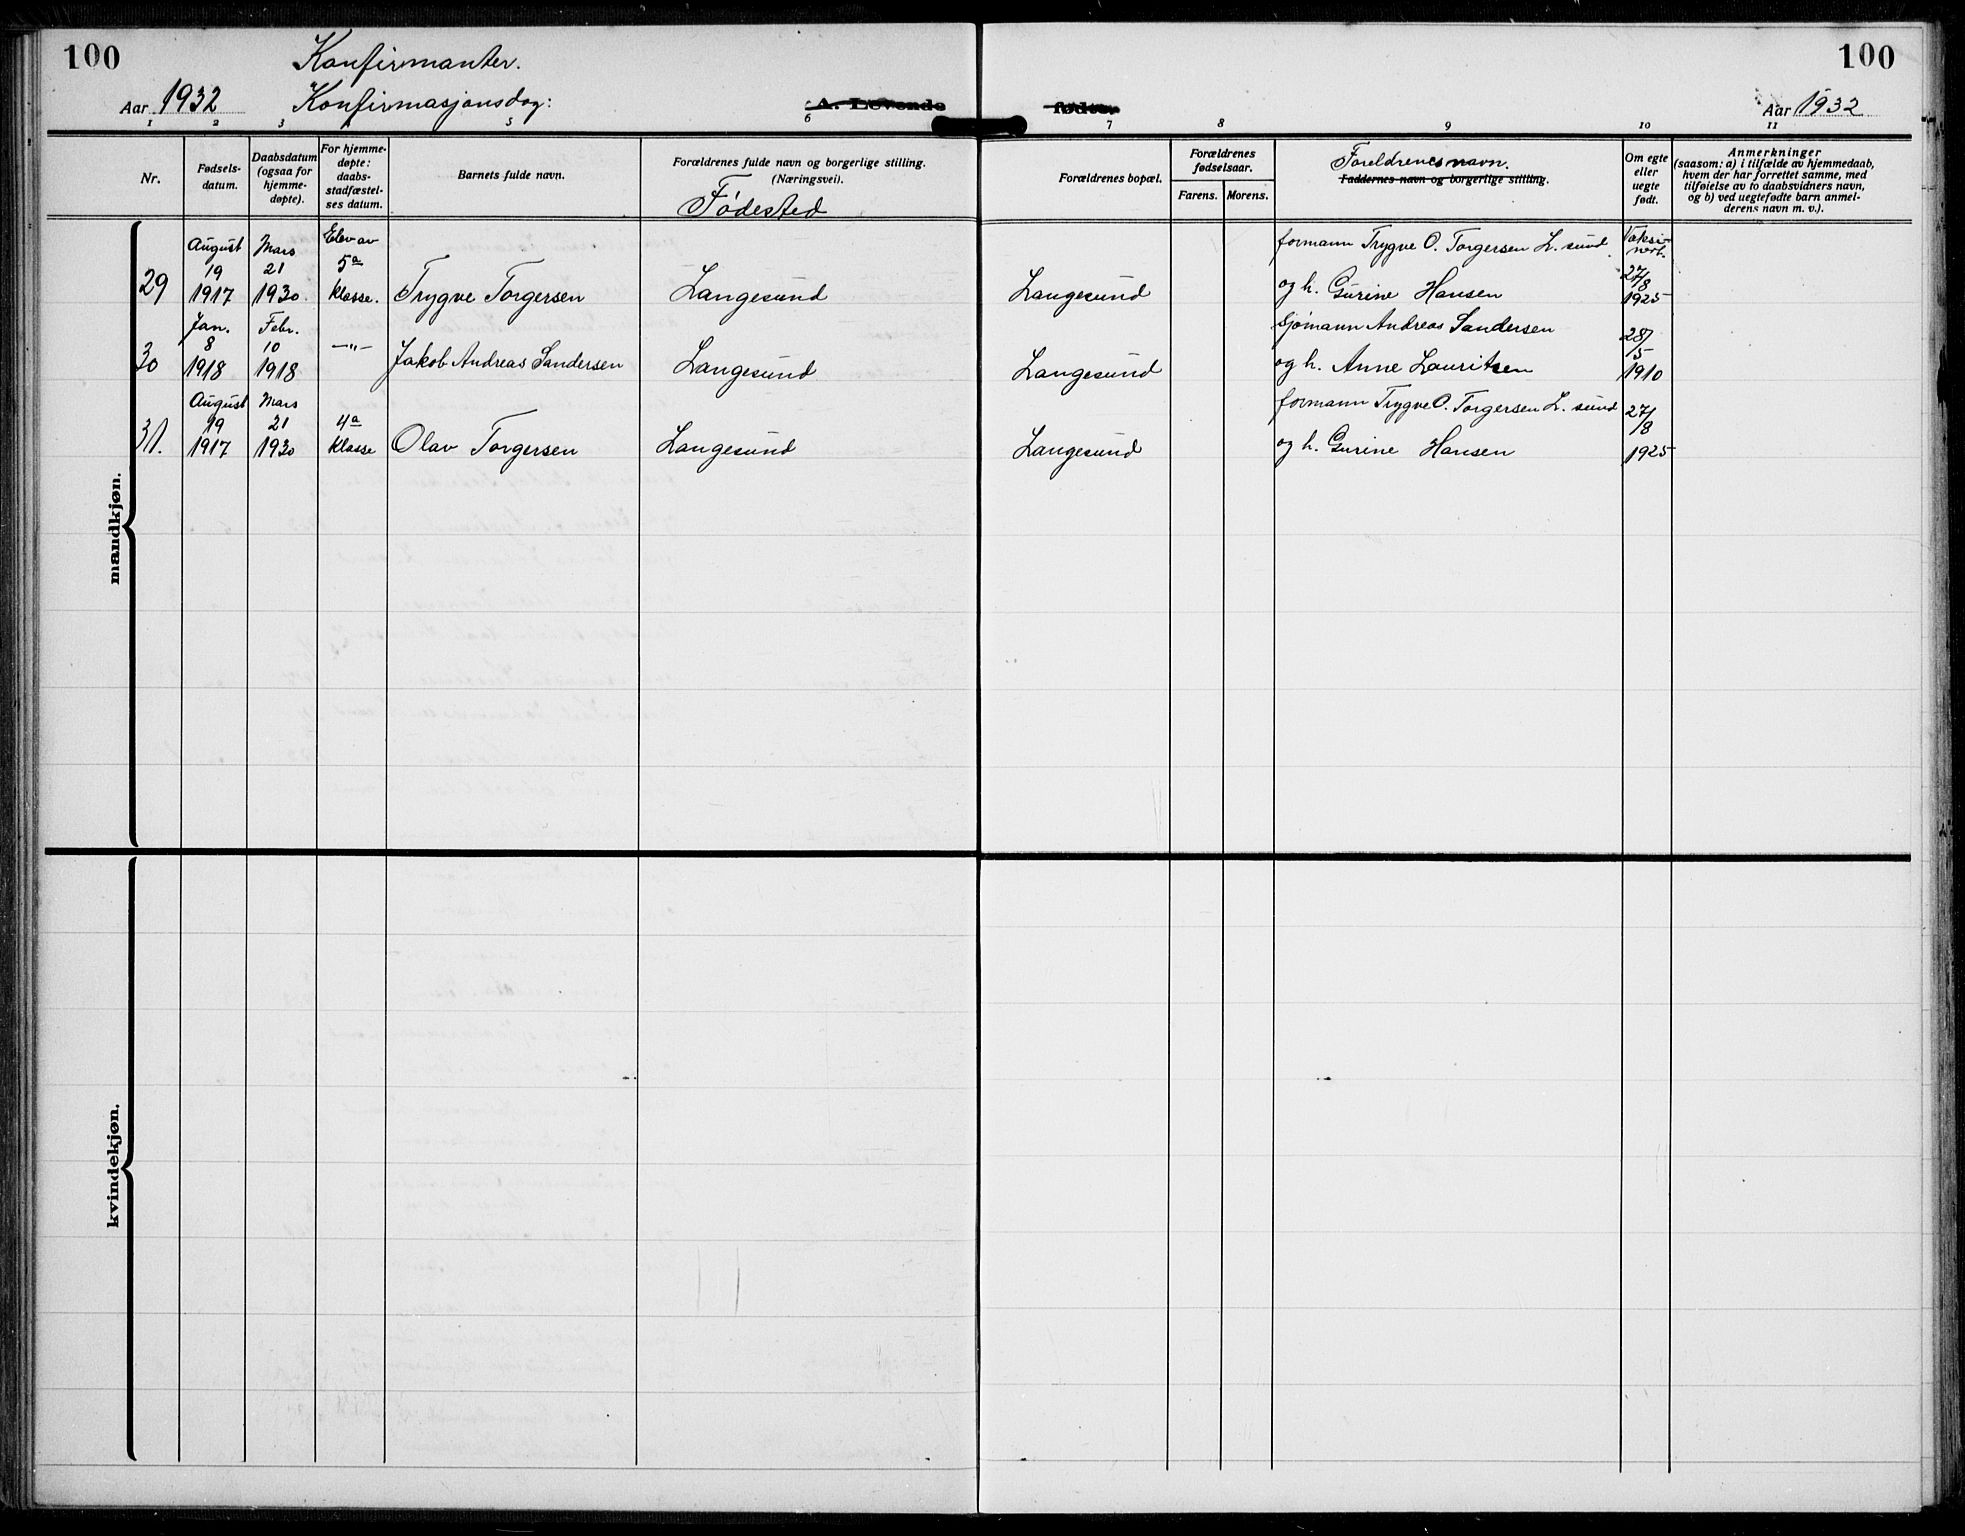 100
Konfirmanter.
Aar 1932 Konfirmasjonsdag:
A. Levende
fødte.
100
Aar 1932
1 2 3 4 5 6 7 8 9 10 11
Nr.
Fødsels-
datum.
Daabsdatum
(ogsaa for
hjemme-
døpte).
For hjemme-
døpte:
daabs-
stadfæstel-
ses datum.
Barnets fulde navn.
Forældrenes fulde navn og borgerlige stilling.
(Næringsvei).
Fødested
Forældrenes bopæl.
Forældrenes
fødselsaar.
Farens. Morens.
Foreldrenes navn.
Faddernes navn og borgerlige stilling.
Om egte
eller
uegte
født.
Anmerkninger
(saasom: a) i tilfælde av hjemmedaab,
hvem der har forrettet samme, med
tilføielse av to daabsvidners navn,
og b) ved uegtefødte barn anmel-
derens navn m. v.).
mandkjøn.
29
August
19
1917
Mars
21
1930
Elev av
5a
klasse.
Trygve Torgersen
Langesund
Langesund
formann Trygve O. Torgersen L. sund
og h. Gurine Hansen
27/8
1925
30
Jan.
8
1918
Febr.
10
1918
—"—
Jakob Andreas Sandersen
Langesund
Langesund
Sjømann Andreas Sandersen
og h. Anne Lauritsen
28/5
1910
31.
August
19
1917
Mars
21
1930
4a
klasse
Olav Torgersen
Langesund
Langesund
formann Trygve O. Torgersen L. sund
og h. Gurine Hansen
27/8
1925
kvindekjøn.